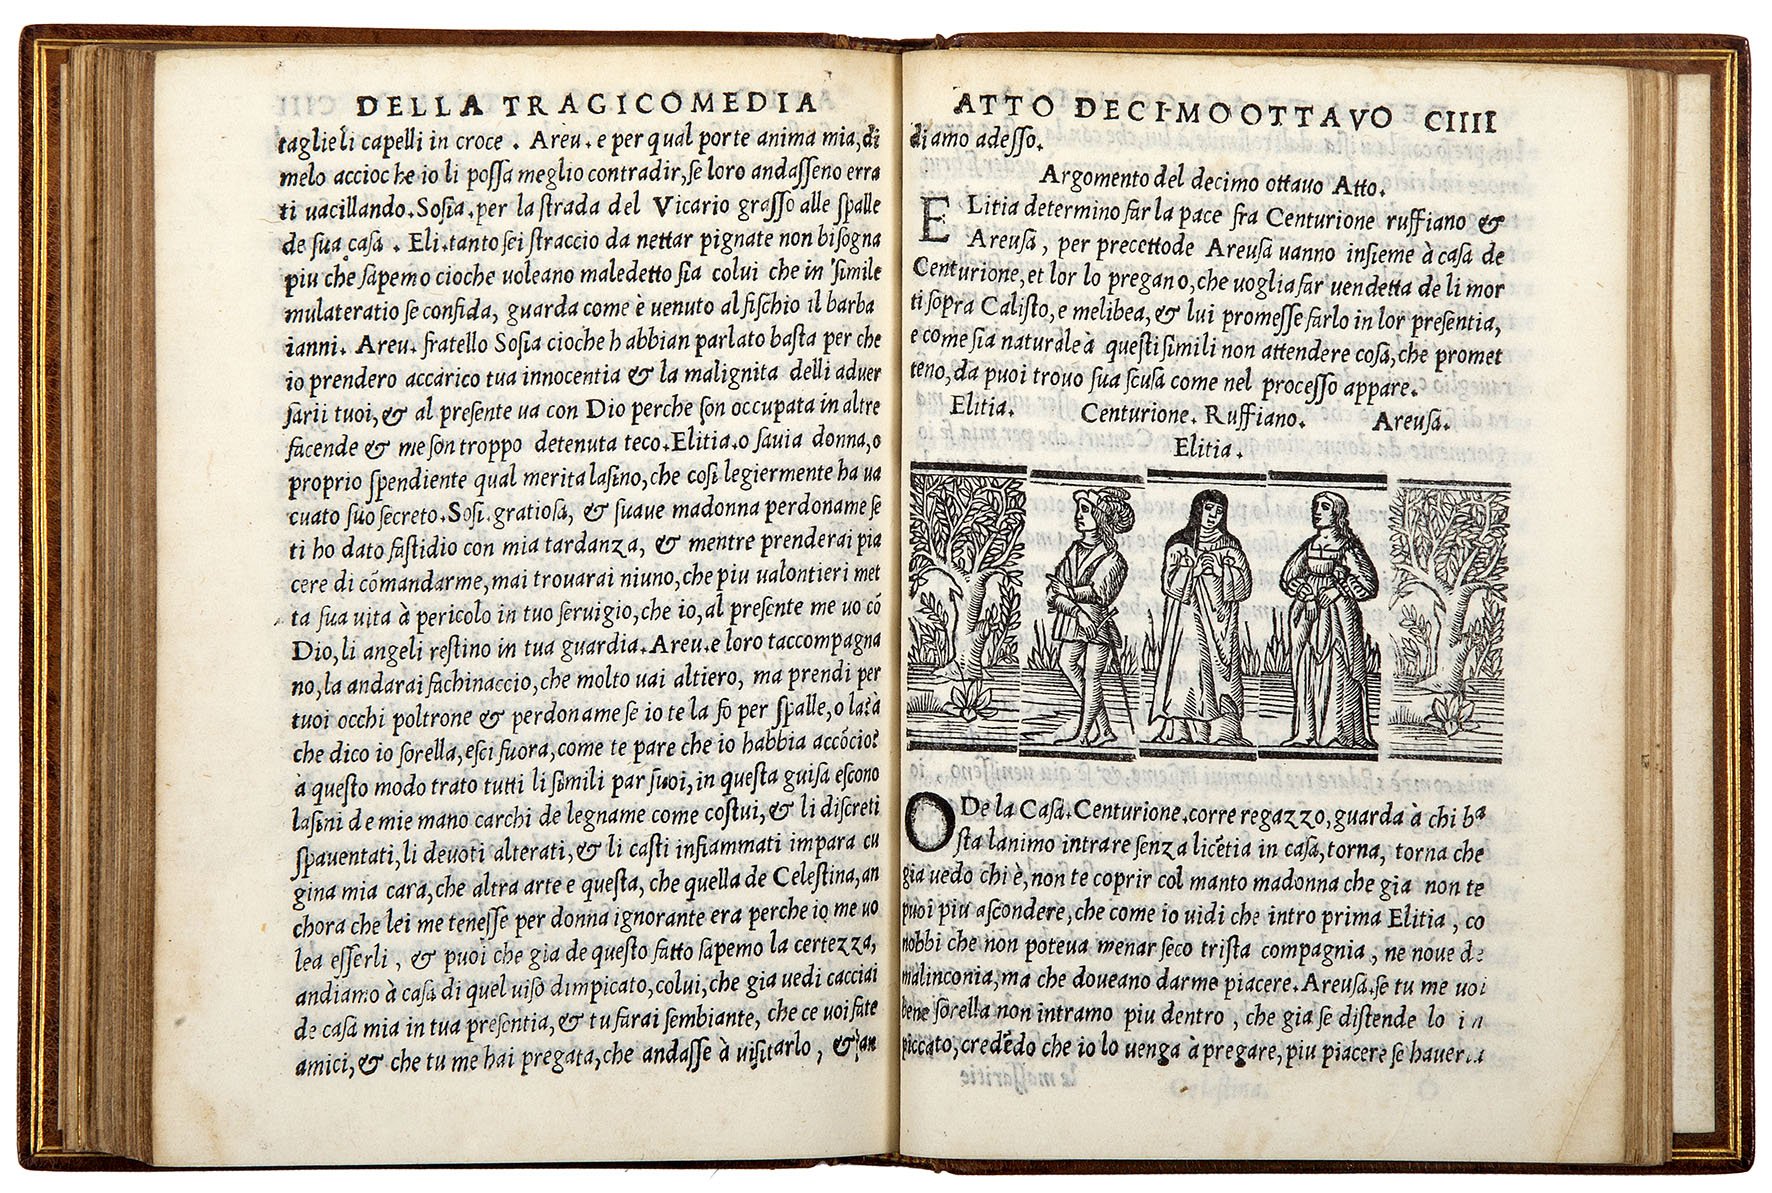 DELLA TRAGICOMEDIA
taglieli capelli in croce . Areu . e per qual porte anima mia, di
melo accioche io li possa meglio contradir, se loro andasseno erra
ti vacillando. Sosia. per la strada del Vicario grasso alle spalle
de sua casa . Eli. tanto sei straccio da nettar pignate non bisogna
piu che sapemo cioche voleano maledetto sia colui che in simile
mulateratio se confida, guarda come è venuto al fischio il barba
ianni. Areu. fratello Sosia cioche habbian parlato basta per che
io prendero accarico tua innocentia & la malignita delli aduer
sarii tuoi, & al presente va con Dio perche son occupata in altre
facende & me son troppo detenuta teco. Elitia. o savia donna, o
proprio spendiente qual merita lasino, che cosi legiermente ha va
cuato suo secreto. Sosi. gratiosa, & suave madonna perdoname se
ti ho dato fastidio con mia tardanza, & mentre prenderai pia
cere di cōmandarme, mai trouarai niuno, che piu ualontieri met
ta sua vita à pericolo in tuo seruigio, che io, al presente me uo cō
Dio, li angeli restino in tua guardia. Areu. e loro taccompagna
no, la andarai fachinaccio, che molto uai altiero, ma prendi per
tuoi occhi poltrone & perdoname se io te la fo per spalle, o la: à
che dico io sorella, esci fuora, come te pare che io habbia accōcio?
à questo modo trato tutti li simili par suoi, in questa guisa escono
lasini de mie mano carchi de legname come costui, & li discreti
spaventati, li devoti alterati, & li casti infiammati impara cu
gina mia cara, che altra arte e questa, che quella de Celestina, an
chora che lei me tenesse per donna ignorante era perche io me uo
lea esserli , & puoi che gia de questo fatto sapemo la certezza,
andiamo à casa di quel uiso dimpicato, colui, che gia uedi cacciai
de casa mia in tua presentia, & tu farai sembiante, che ce uoi fate
amici, & che tu me hai pregata, che andasse à uisitarlo , & an
ATTO DECIMOOTTAVO CIIII
diamo adesso.
Argomento del decimo ottauo Atto.
ELitia determino far la pace fra Centurione ruffiano &
Areusa, per precettode Areusa uanno insieme à casa de
Centurione, et lor lo pregano, che uoglia far vendetta de li mor
ti sopra Calisto, e melibea, & lui promesse farlo in lor presentia,
e come sia naturale à questi simili non attendere cosa, che promet
teno, da puoi trouo sua scusa come nel processo appare.
Elitia. Centurione. Ruffiano. Areusa.
Elitia.
ODe la Casa. Centurione. corre regazzo, guarda à chi ba
sta lanimo intrare senza licētia in casa, torna, torna che
gia uedo chi è, non te coprir col manto madonna che gia non te
puoi piu ascondere, che come io uidi che intro prima Elitia , co
nobbi che non poteua menar seco trista compagnia , ne noue de
malinconia, ma che doueano darme piacere. Areusa. se tu me uoi
bene sorella non intramo piu dentro , che gia se distende lo in
piccato, credēdo che io lo uenga à pregare, piu piacere se haueria